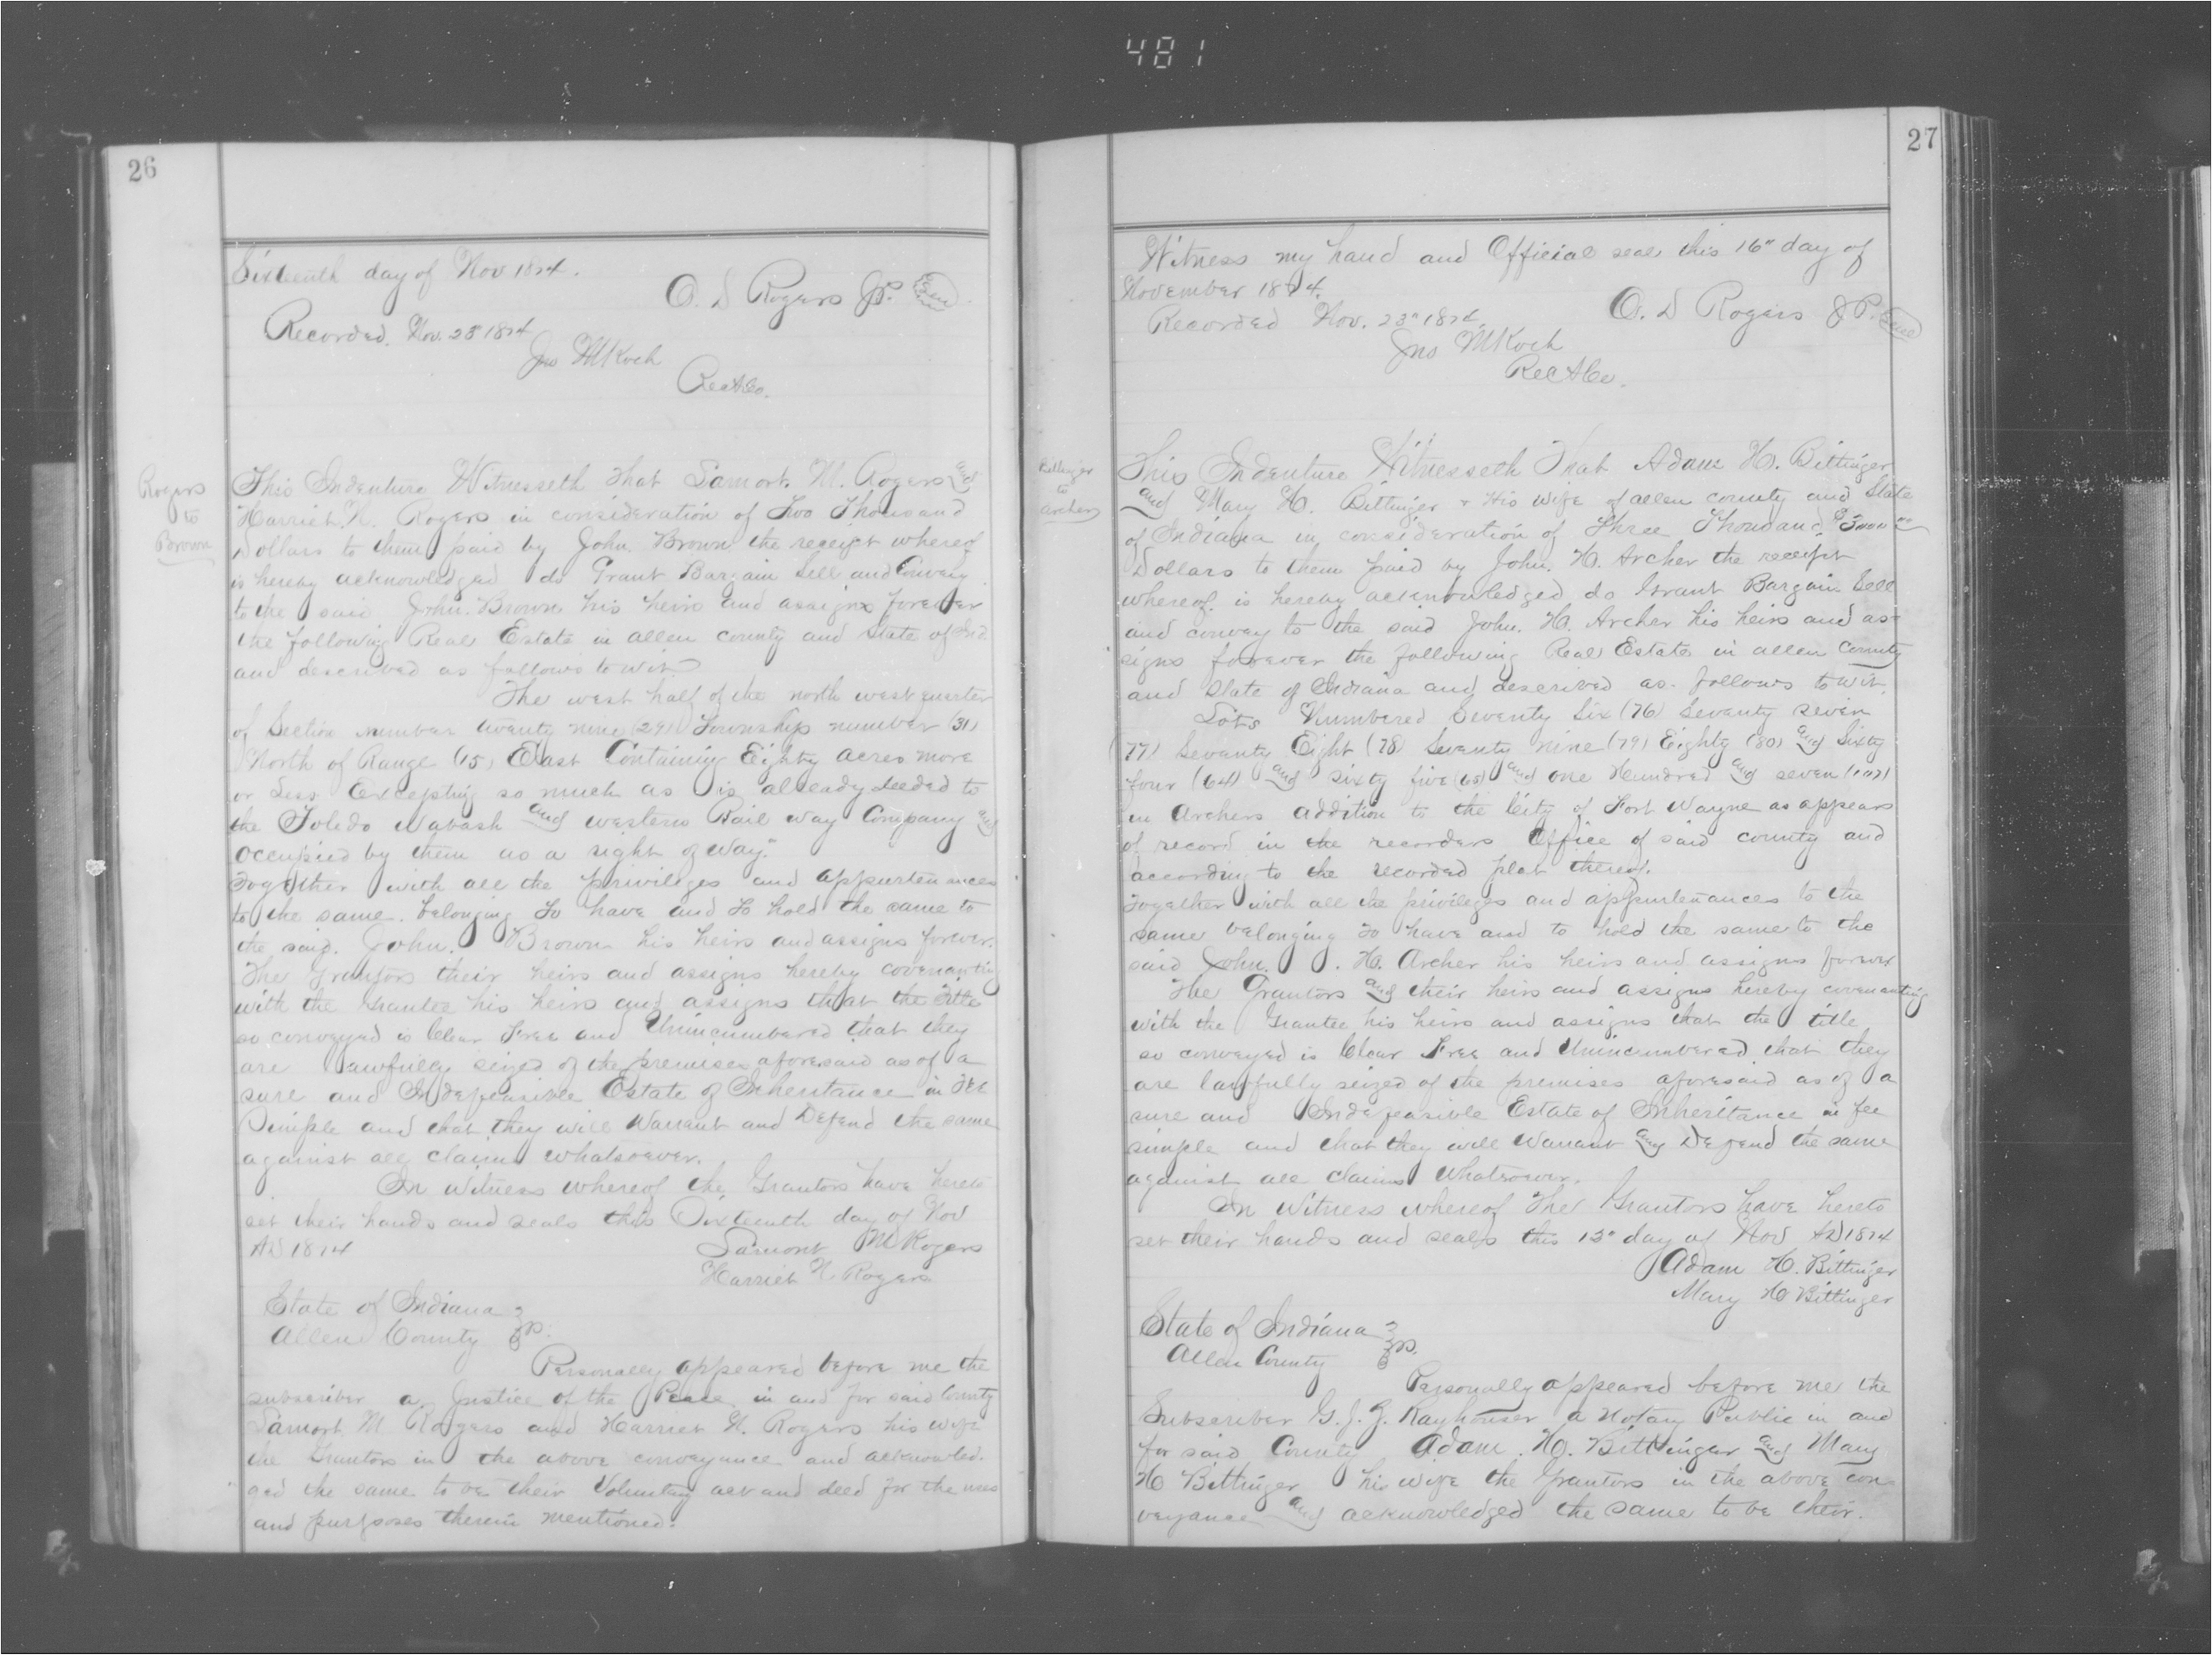 481
26
Sixteenth day of Nov 1874.
O. D Rogers J.P. Seal
Recorded. Nov. 23" 1874
Jno M Koch
Rec A Co.
Rogers
to
Brown
This Indenture Witnesseth That Lamort. M. Rogers and
Harriet. N. Rogers in consideration of Two Thousand
Dollars to them paid by John. Brown the receipt whereof
is hereby acknowledged do Grant Bargain Sell and Convey
to the said John. Brown his heirs and assigns forever
the following Real Estate in allen county and State of Ind
and described as follows to wit
The west half of the north west quarter
of Section number twenty nine (29) Township number (31)
North of Range (15) East Containing Eighty acres more
or Less Excepting so much as is already deeded to
the Toledo Wabash and western Rail way Company and
occupied by them as a right of way.
Together with all the privileges and appurtenances
to the same. belonging To have and to hold the same to
the said. John. Brown his heirs and assigns forever.
The Grantors their heirs and assigns hereby covenanting
with the Grantee his heirs and assigns that the Title
so conveyed is Clear Free and Unincumbered that they
are Lawfully seized of the premises aforesaid as of a
sure and Indefeasible Estate of Inheritance in Fee
Simple and that they will Warrant and Defend the same
against all claims whatsoever.
In witness whereof the Grantors have hereto
set their hands and seals this Sixteenth day of Nov
AD 1874
Lamort M Rogers
Harriet N. Rogers
State of Indiana
Allen County ss.
Personally appeared before me the
subscriber a Justice of the Peace in and for said County
Lamort M Rogers and Harriet N. Rogers his wife
the Grantors in the above conveyance and acknowled.
ged the same to be their Voluntary act and deed for the uses
and purposes therein mentioned.
27
Witness my hand and Official seal this 16" day of
November 1874.
O. D Rogers J P. Seal
Recorded Nov. 23" 1874.
Jno M Koch
Rec A Co.
Bittinger
to
Archer
This Indenture Witnesseth That Adam H. Bittinger
and Mary H. Bittinger + His wife of allen county and State
of Indiana in consideration of Three Thousand $3000 00
Dollars to them paid by John. H. Archer the receipt
whereof. is hereby acknowledged do Grant Bargain Sell
and convey to the said John. H. Archer his heirs and as-
signs forever the following Real Estate in allen County
and State of Indiana and described as. follows to wit.
Lots Numbered Seventy Six (76) Seventy seven
(77) Seventy Eight (78) Seventy nine (79) Eighty (80) and Sixty
four (64) and sixty five (65) and one Hundred and seven (107)
in Archers addition to the City of Fort Wayne as appears
of record in the recorders Office of said county and
according to the recorded plat thereof.
Together with all the privileges and appurtenances to the
same belonging To have and to hold the same to the
said John. H. Archer his heirs and assigns forever
The Grantors and their heirs and assigns hereby covenanting
with the Grantee his heirs and assigns that the title
so conveyed is Clear Free and Unincumbered that they
are lawfully seized of the premises aforesaid as of a
sure and Indefeasible Estate of Inheritance in fee
simple and that they will Warrant and Defend the same
against all claims Whatsoever.
In witness whereof The Grantors have hereto
set their hands and seals this 13" day of Nov AD 1874
Adam H. Bittinger
Mary H Bittinger
State of Indiana
Allen County ss.
Personally appeared before me the
Subscriber G. J. Z. Rayhouser a Notary Public in and
for said County Adam. H. Bittinger and Mary
H Bittinger his wife the Grantors in the above con
veyance and acknowledged the same to be their.